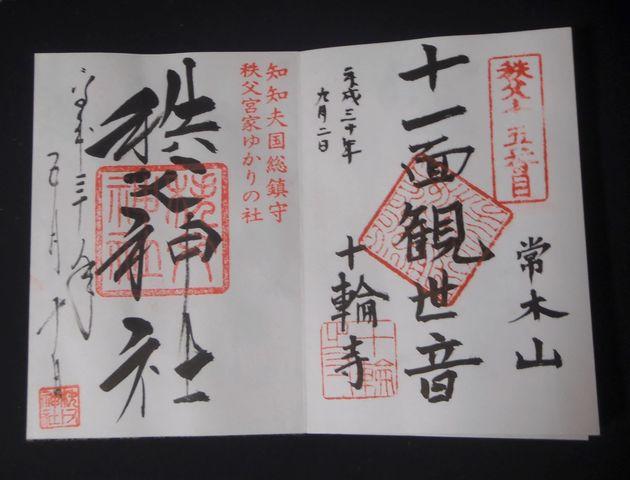 秩父十五番目
常木山
十一面観世音
十輪寺
平成三十年
九月二日
知知夫国総鎮守
秩父宮家ゆかりの社
秩父神社
秩父神社
平成三十年
秩父神社